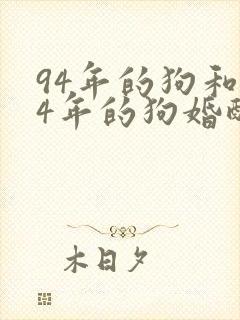 94年的狗和
4年的狗婚配
木日夕